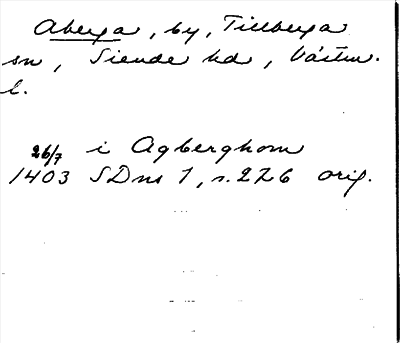 Aberga, by, Tillberga
sn, Siende hd, Västm.
l.
26/7 i Agberghom
1403 SDns 1, s. 276 orig.